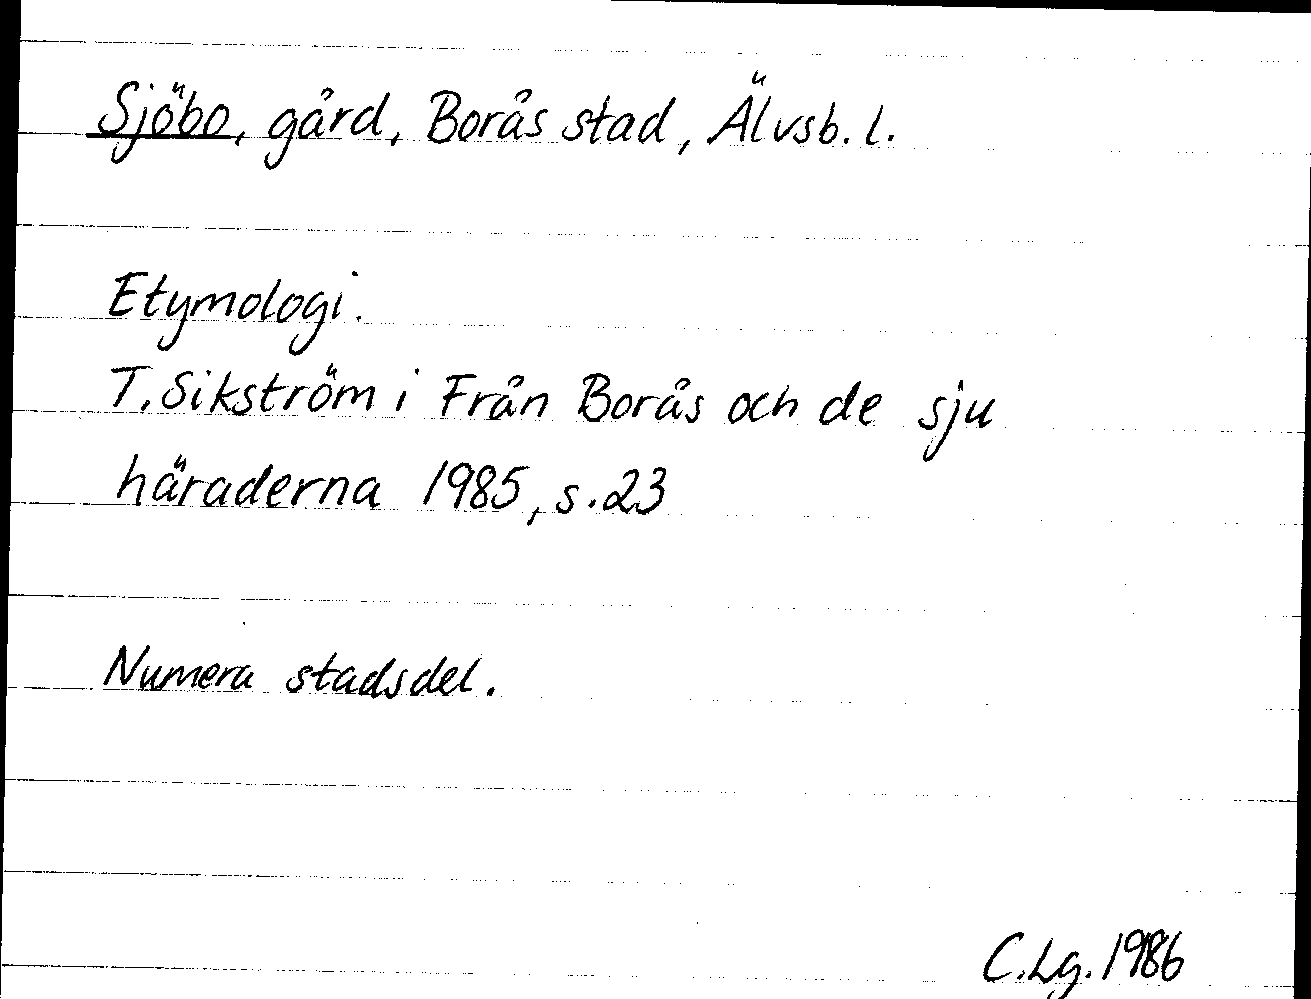 Sjöbo, gård, Borås stad, Älvsb. l.
Etymologi.
T. Sikström i Från Borås och de sju
häraderna 1985, s. 23
Numera stadsdel.
C. Lg. 1986